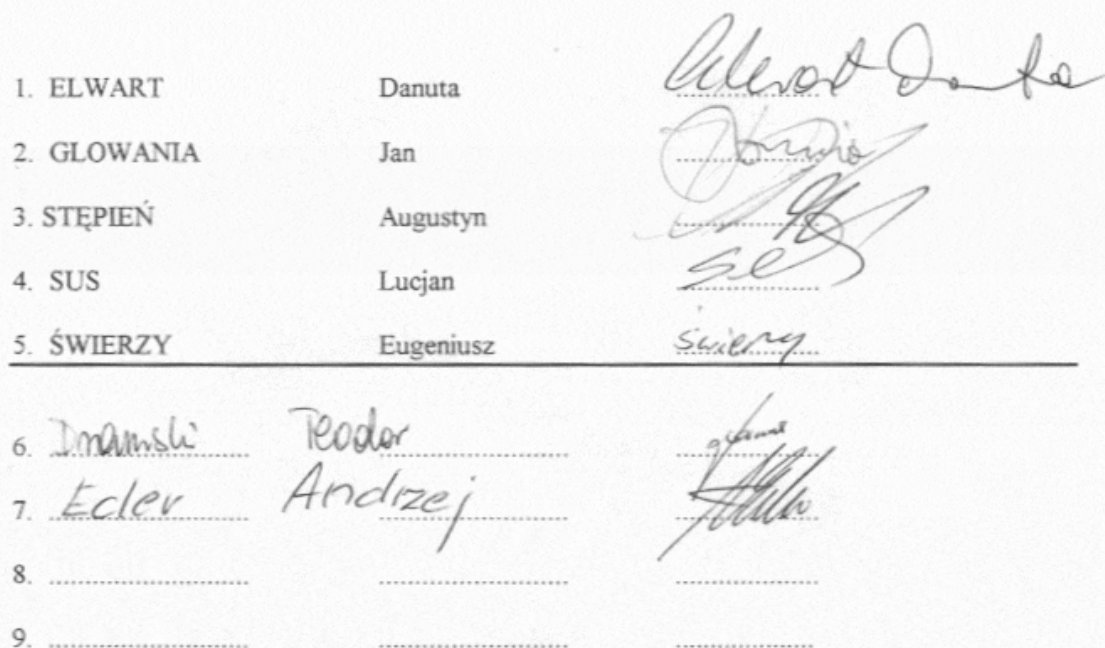 1. ELWART Danuta Elwart Danuta
2. GLOWANIA Jan
3. STĘPIEŃ Augustyn
4. SUS Lucjan
5. ŚWIERZY Eugeniusz Świerzy
6. Teodor
7. Edler Andrzej
8.
9.